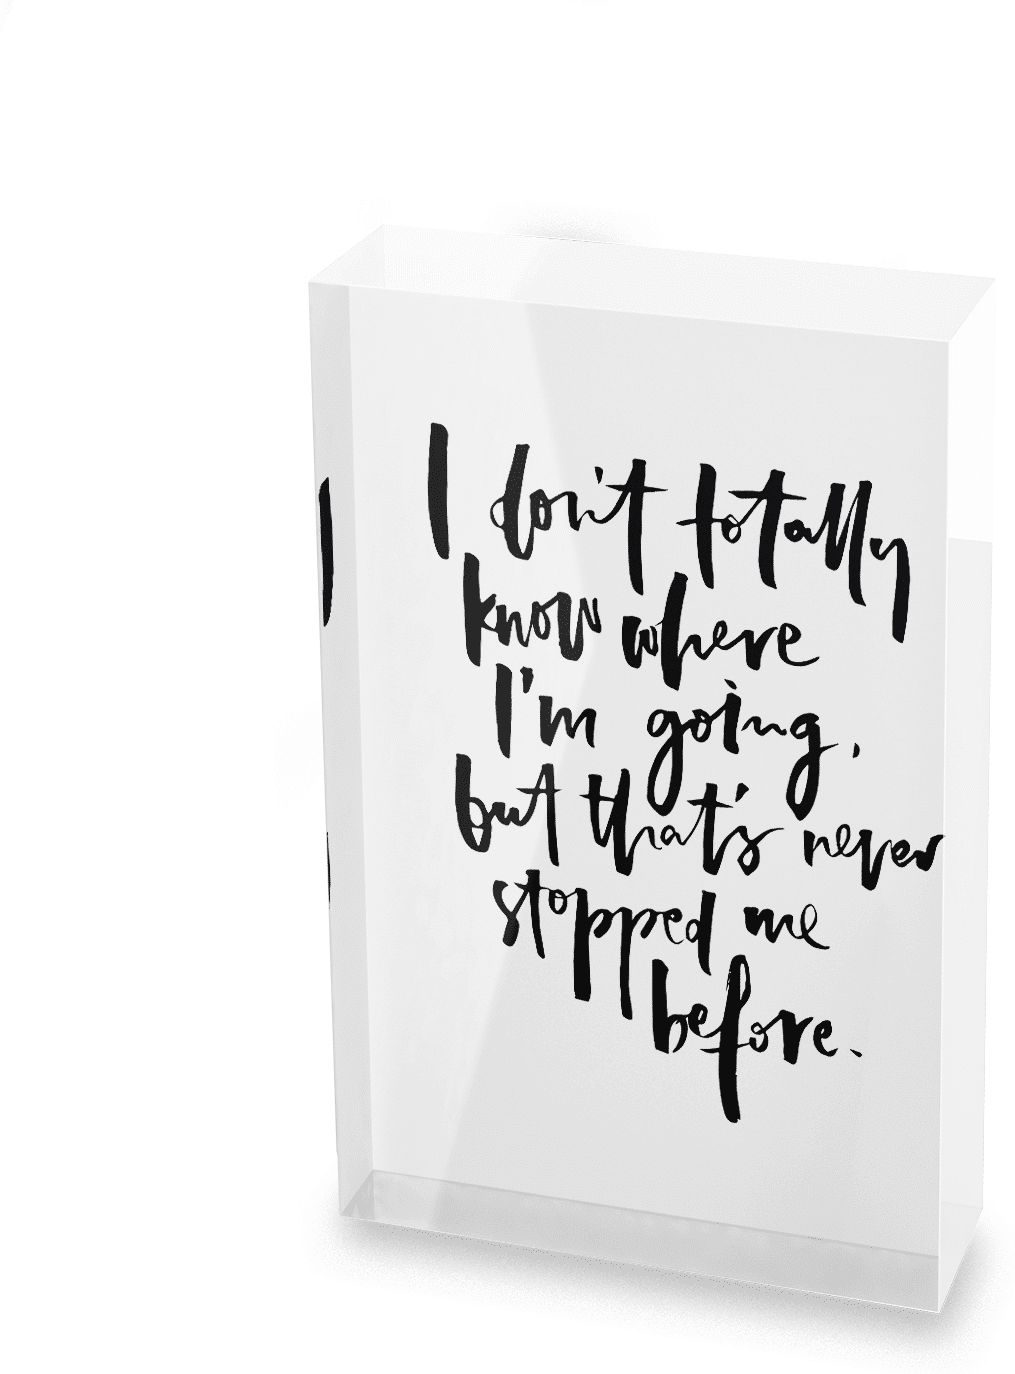 I don't totally
know where
I'm going,
but that's never
stopped me
before.